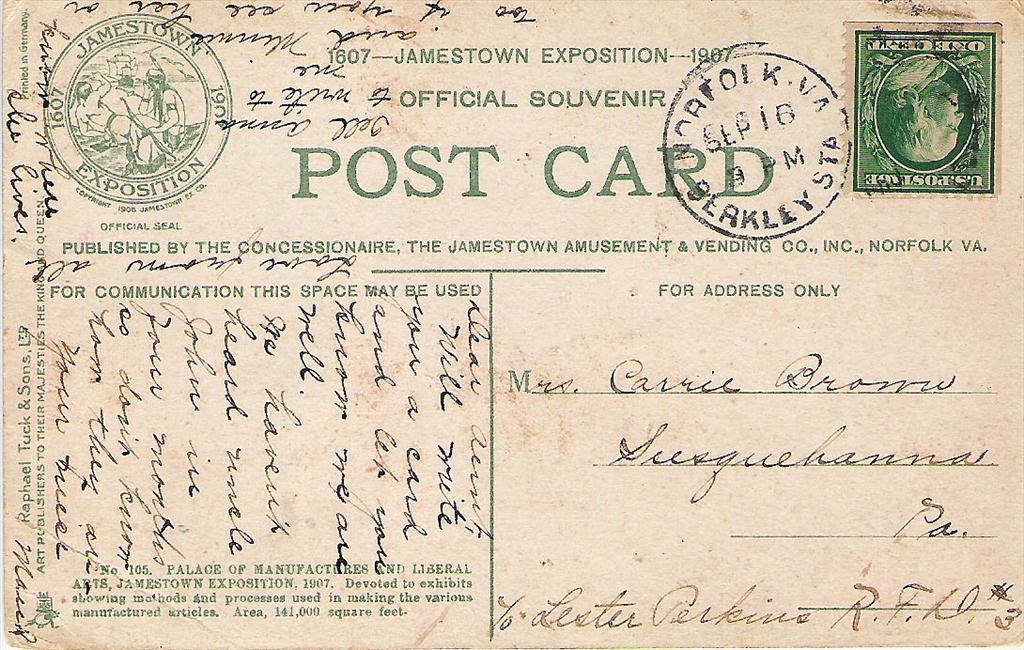 1607—JAMESTOWN EXPOSITION—1907
OFFICIAL SOUVENIR
POST CARD
JAMESTOWN
1607
1907
EXPOSITION
COPYRIGHT 1906 JAMESTOWN EX. CO.
OFFICIAL SEAL
PUBLISHED BY THE CONCESSIONAIRE, THE JAMESTOWN AMUSEMENT & VENDING CO., INC., NORFOLK VA.
FOR COMMUNICATION THIS SPACE MAY BE USED
FOR ADDRESS ONLY
NORFOLK, VA.
SEP 16
9 PM
BERKLEY STA
U.S. POSTAGE
ONE CENT
Dear Aunt,
Will write
you a card
and let you
know we are
well.
We havent
heard uncle
John in
four months
so dont know
how they are
Your niece
Maud
Love from all
tell Anna
to write to
me
and Minnie
too if you see her or
know where
she lives.
Mrs. Carrie Brown
Susquehanna
Pa.
c/o Lester Perkins R.F.D. #3
No. 105. PALACE OF MANUFACTURES AND LIBERAL
ARTS, JAMESTOWN EXPOSITION, 1907. Devoted to exhibits
showing methods and processes used in making the various
manufactured articles. Area, 141,000 square feet-
Raphael Tuck & Sons, Ltd
ART PUBLISHERS TO THEIR MAJESTIES THE KING AND QUEEN
Printed in Germany.